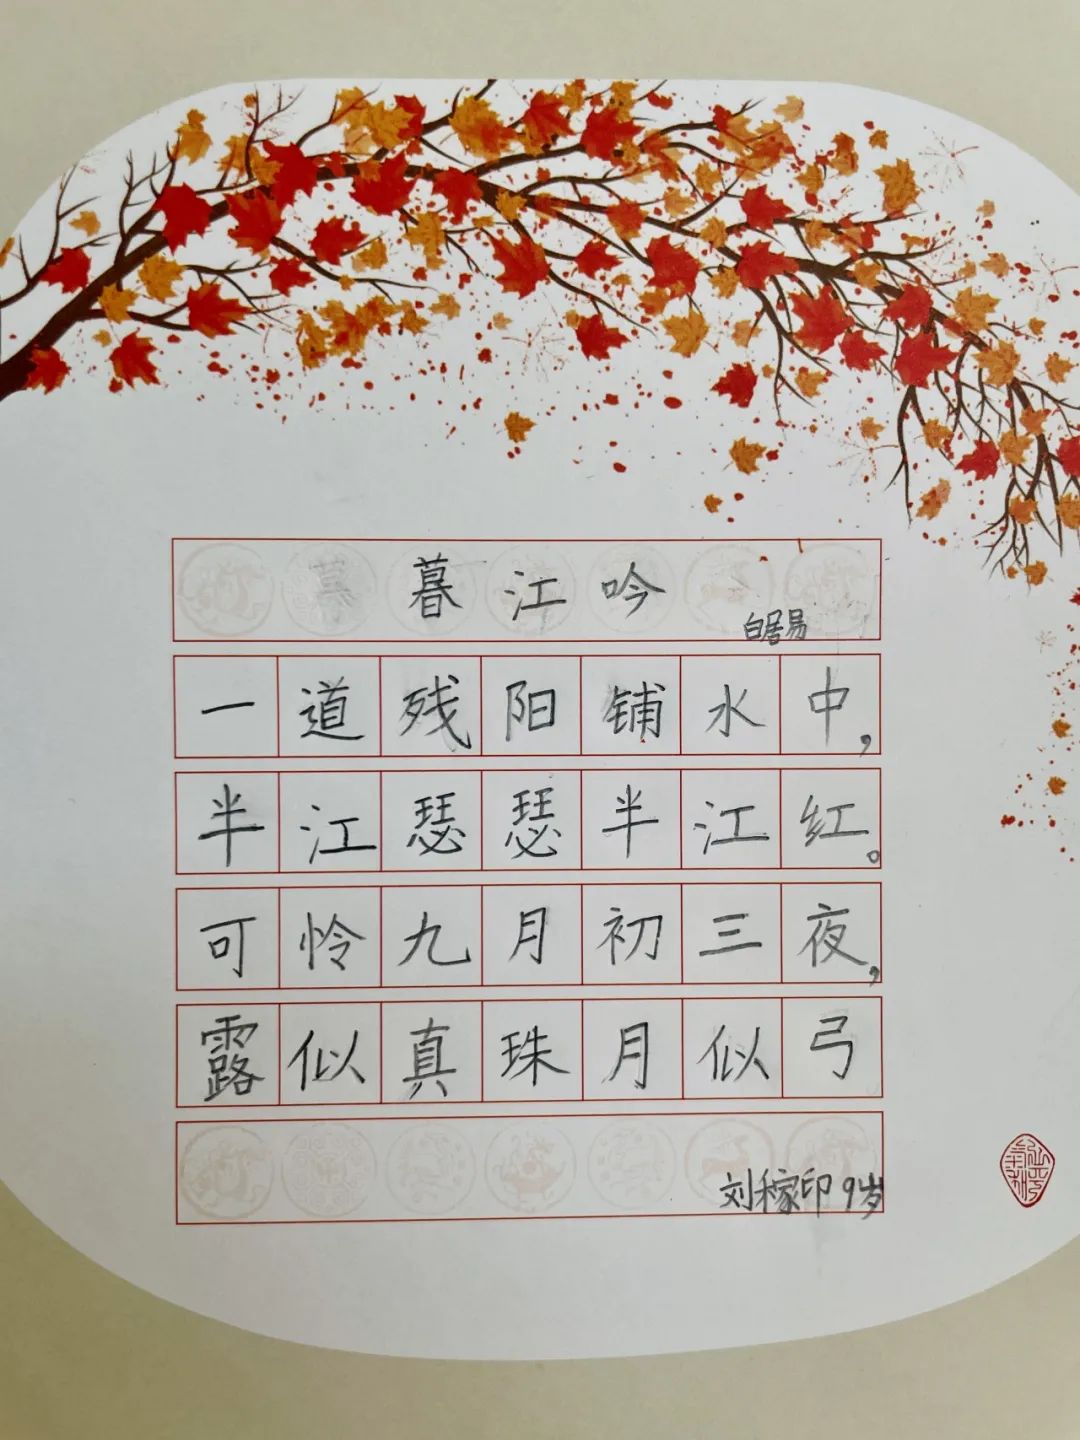 暮江吟
白居易
一道残阳铺水中，
半江瑟瑟半江红。
可怜九月初三夜，
露似真珠月似弓
刘稼印 9岁